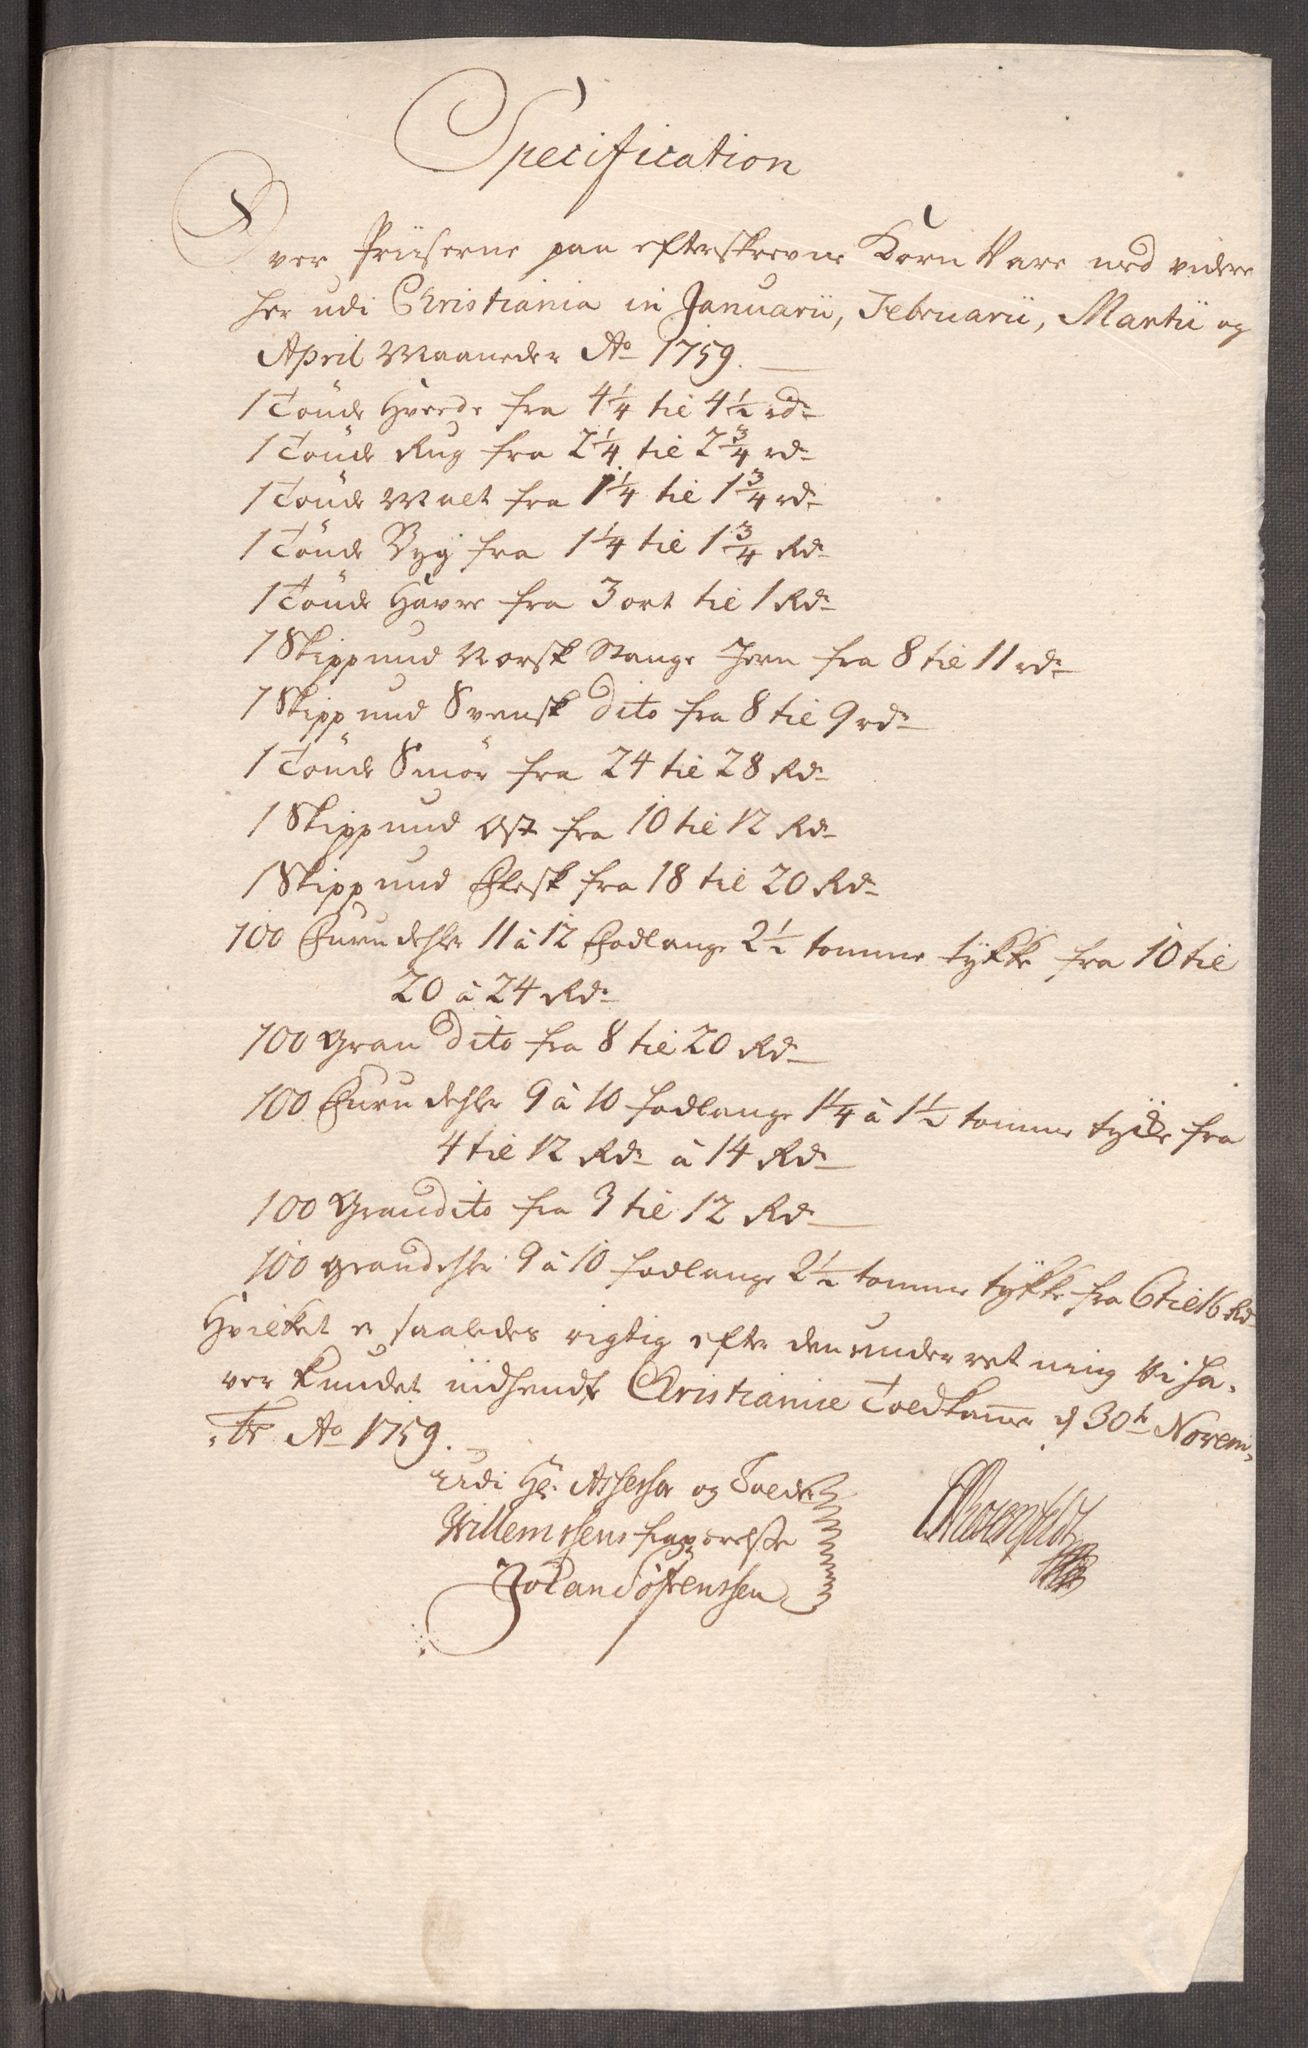 Specification
Over Priiserne paa efterskrevne Korn Vare med videre
her udi Christiania in Januarii, Februarii, Martii og
April Maaneder Ao 1759.
1 Tönde Hvede fra 4 1/4 til 4 1/2 rdr
1 Tönde Rug fra 2 1/4 til 2 3/4 rdr
1 Tönde Malt fra 1 1/4 til 1 3/4 rdr
1 Tönde Byg fra 1 1/4 til 1 3/4 Rdr
1 Tönde Havre fra 3 ort til 1 Rdr
1 Skippund Norsk Stange Jern fra 8 til 11 rdr
1 Skippund Svensk dito fra 8 til 9 rdr
1 Tönde Smör fra 24 til 28 Rdr
1 Skippund Ost fra 10 til 12 Rdr
1 Skippund Flesk fra 18 til 20 Rdr
100 Furu dehler 11 à 12 Fodlange 2 1/2 tomme tykke fra 10 til
20 à 24 Rdr
100 Gran dito fra 8 til 20 Rdr
100 Furu dehler 9 à 10 fodlange 1 1/4 à 1 1/2 tomme tycke fra
4 til 12 Rdr à 14 Rdr
100 Gran dito fra 3 til 12 Rdr
100 grandehler 9 à 10 fodlange 2 1/2 tomme tykke fra 6 til 16 Rdr
Hvilket er saaledes rigtig efter den underretning vi ha-
ver kundet indhendte Christianiæ Toldkammer d 30te Novem-
br: Ao 1759.
Udi Hr. Assessor og Tolder
Willemssens fraværelse
Johan Sörenssen